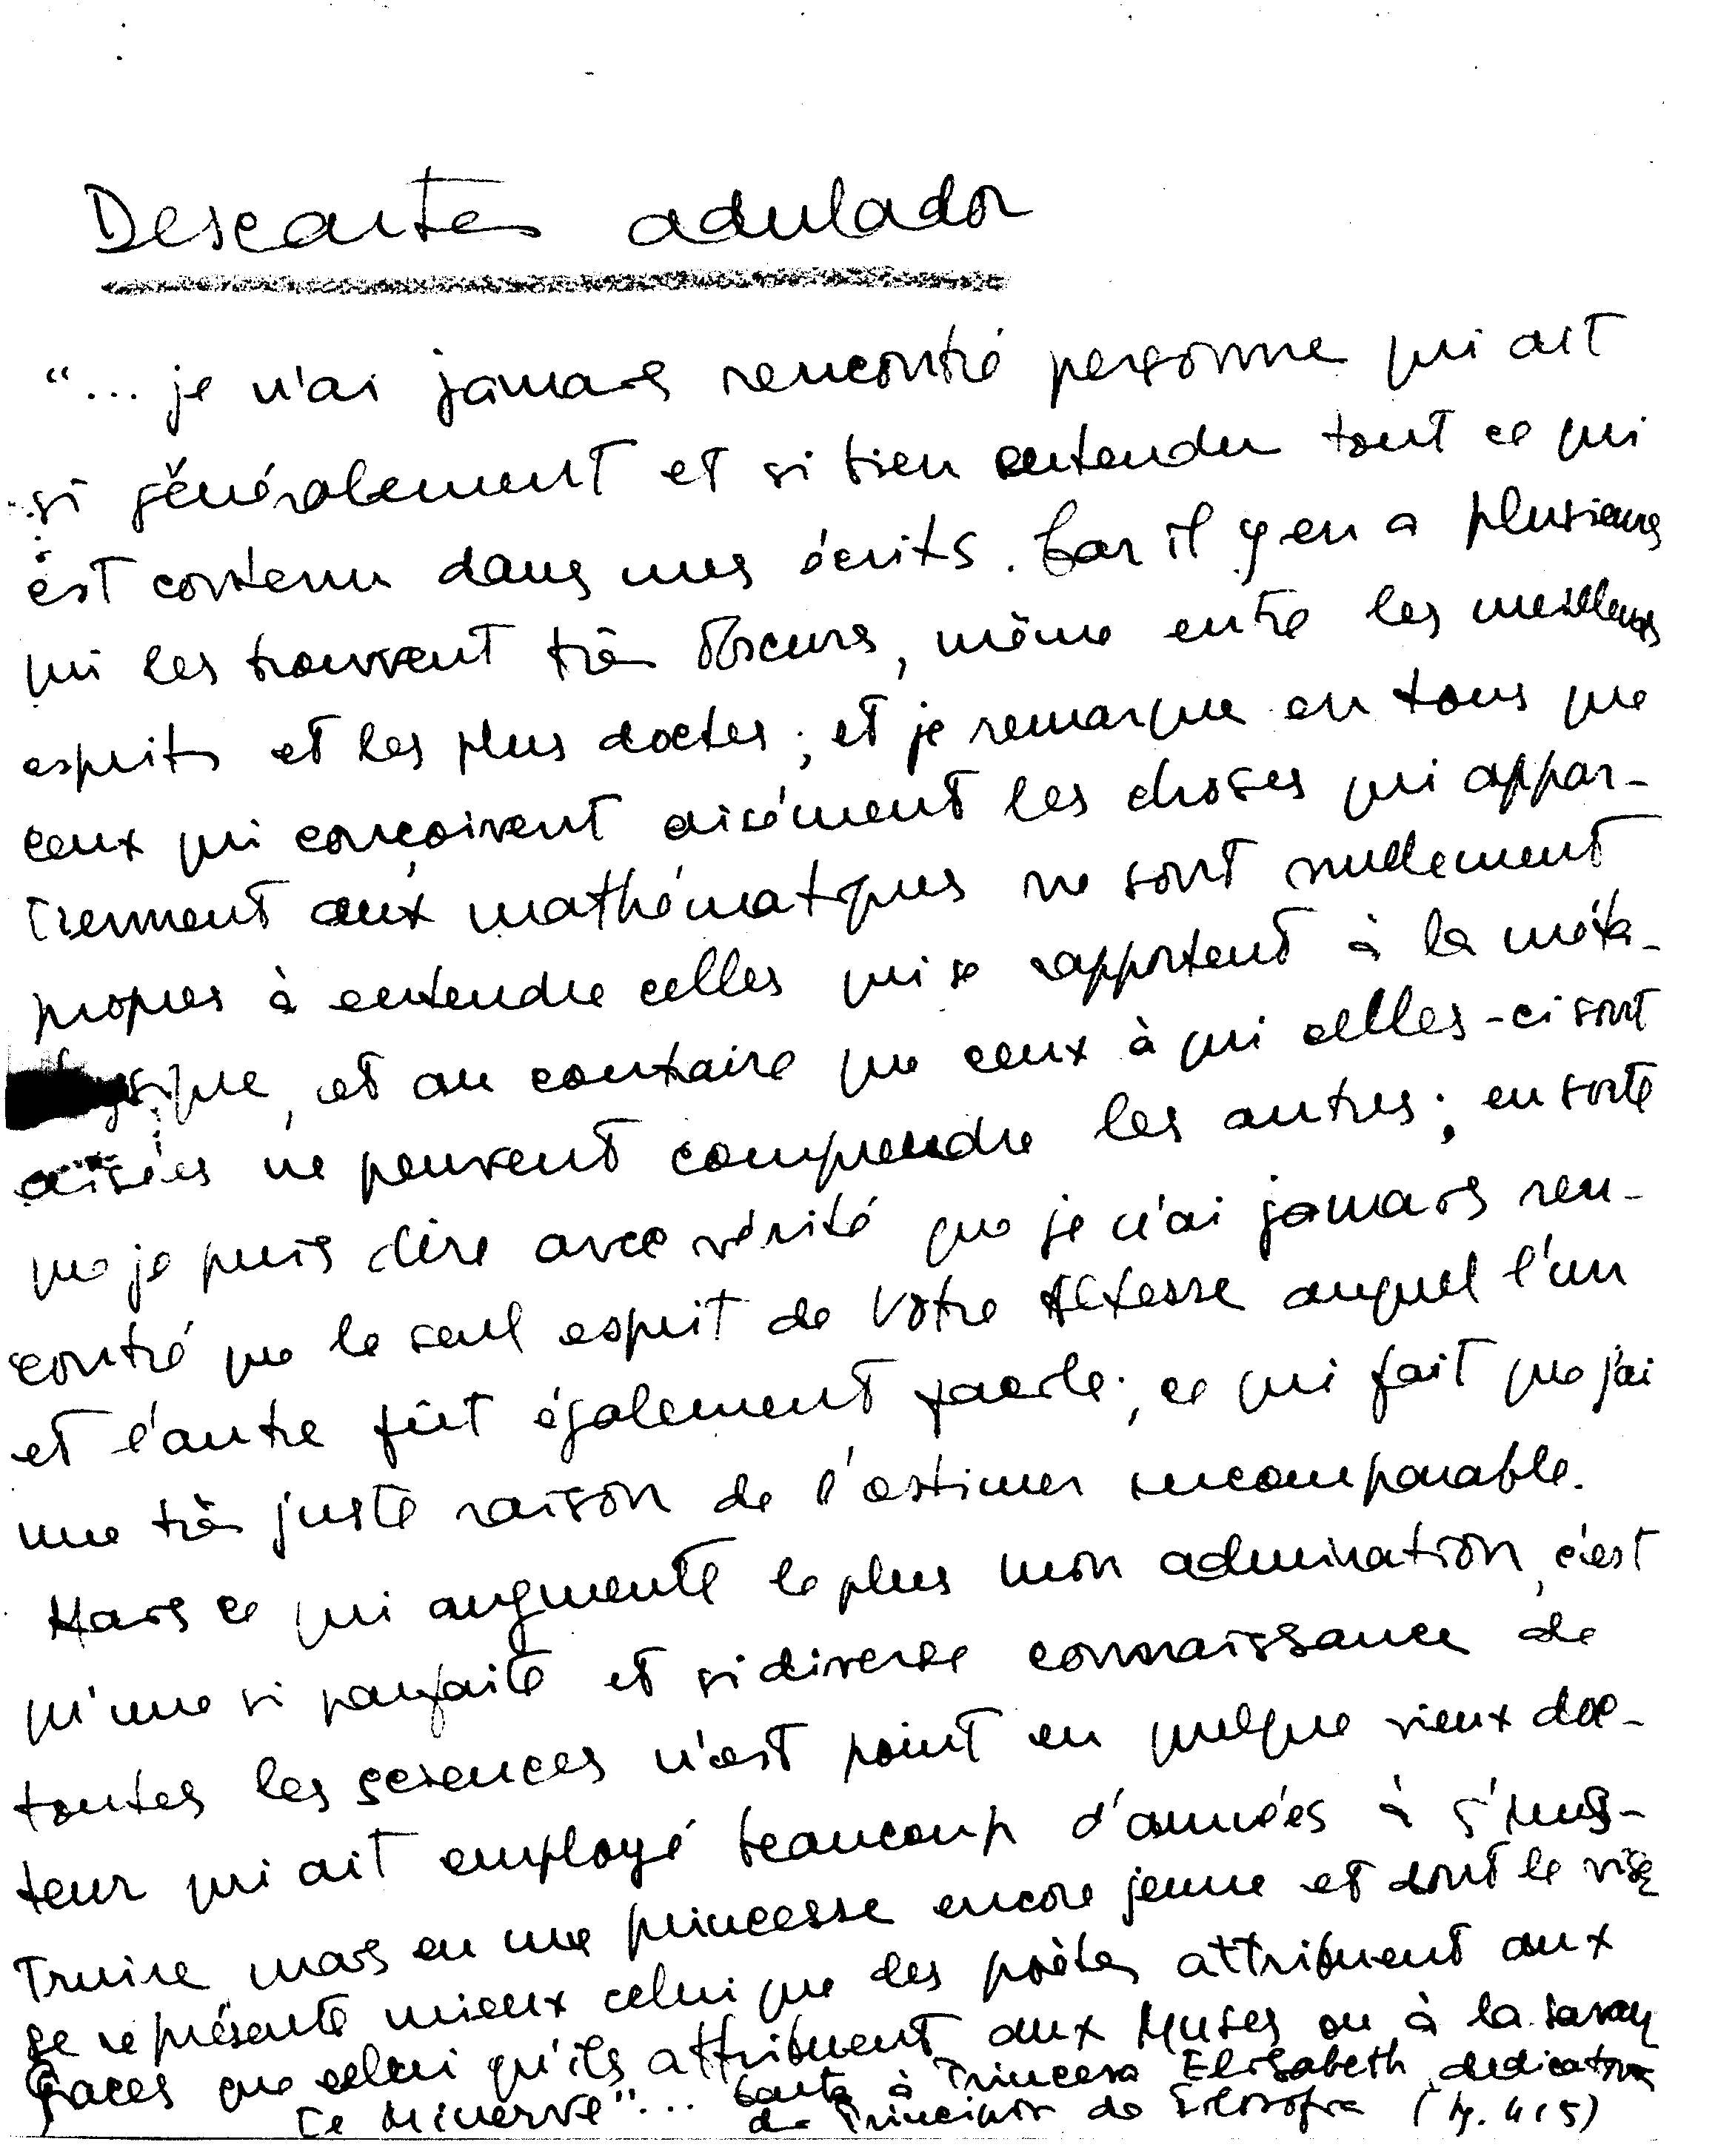 Descartes adulador
"... je n'ai jamais rencontré personne qui ait
si généralement et si bien entendu tout ce qui
est contenu dans mes écrits. Car il y en a plusieurs
qui les trouvent très obscurs, même entre les meilleurs
esprits et les plus doctes; et je remarque en tous que
ceux qui conçoivent aisément les choses qui appar-
tiennent aux mathématiques ne sont nullement
propres à entendre celles qui se rapportent à la méta-
physique, et au contraire que ceux à qui celles-ci sont
aisées ne peuvent comprendre les autres; en sorte
que je puis dire avec vérité que je n'ai jamais ren-
contré que le seul esprit de Votre Altesse auquel l'un
et l'autre fût également facile; ce qui fait que j'ai
une très juste raison de l'estimer incomparable.
Mais ce qui augmente le plus mon admiration, c'est
qu'une si parfaite et si diverse connaissance de
toutes les sciences n'est point en quelque vieux doc-
teur qui ait employé beaucoup d'années à s'ins-
truire, mais en une princesse encore jeune et dont le visage
se représente mieux celui que les poètes attribuent aux
Graces que celui qu'ils attribuent aux Muses ou à la savan
te Minerve"... Carta à Princesa Elisabeth, dedicatória
de Princípios de Filosofia (1)